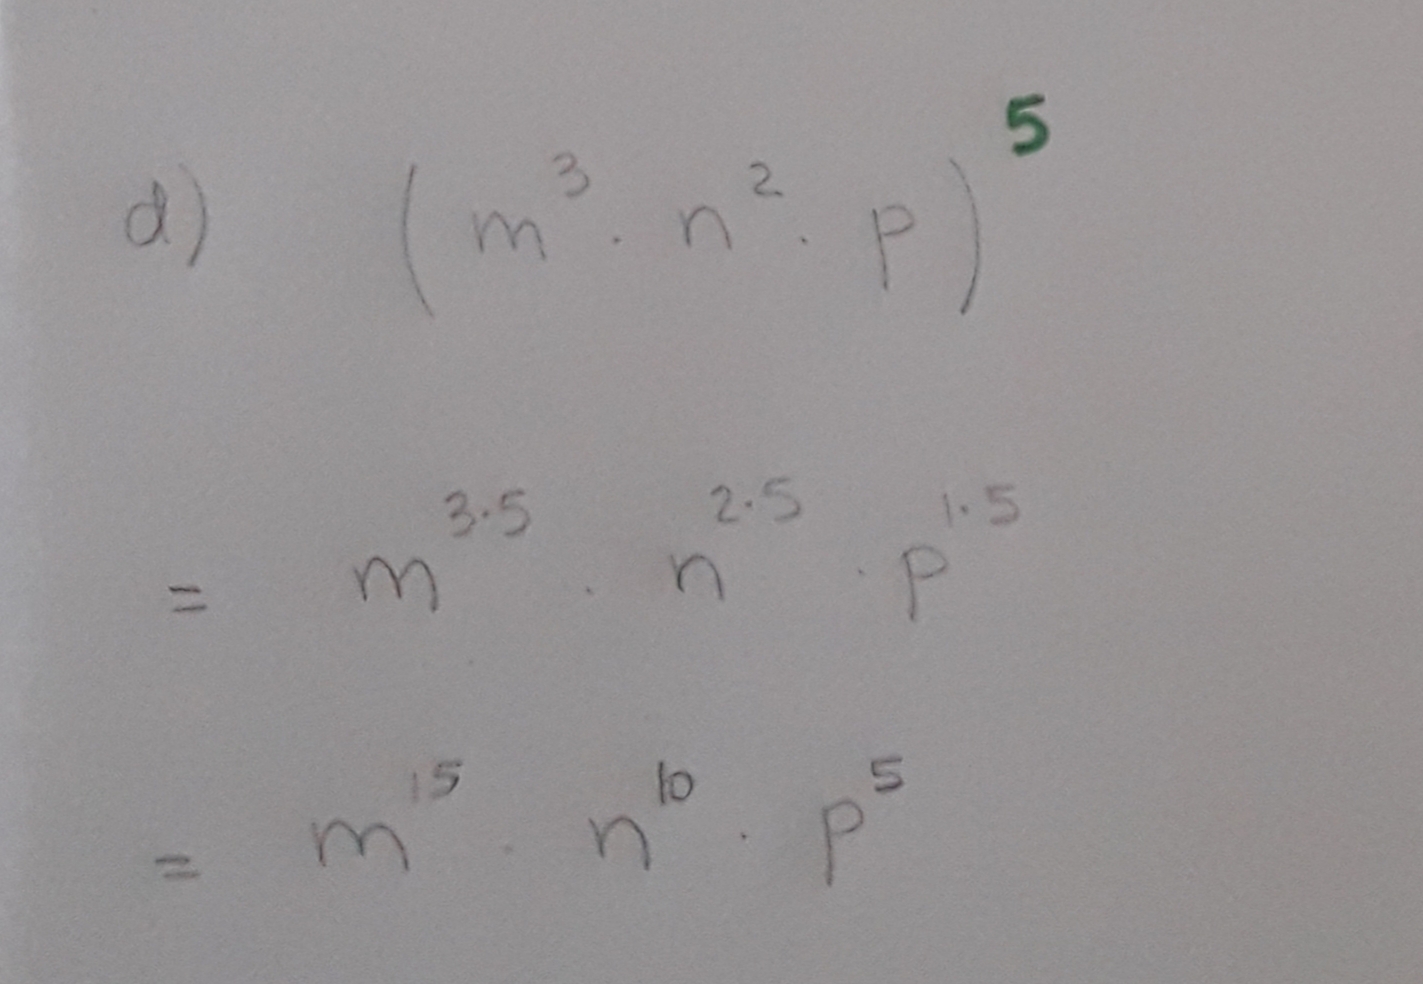 d) (m³ · n² · p)⁵
= m³·⁵ · n²·⁵ · p¹·⁵
= m¹⁵ · n¹⁰ · p⁵